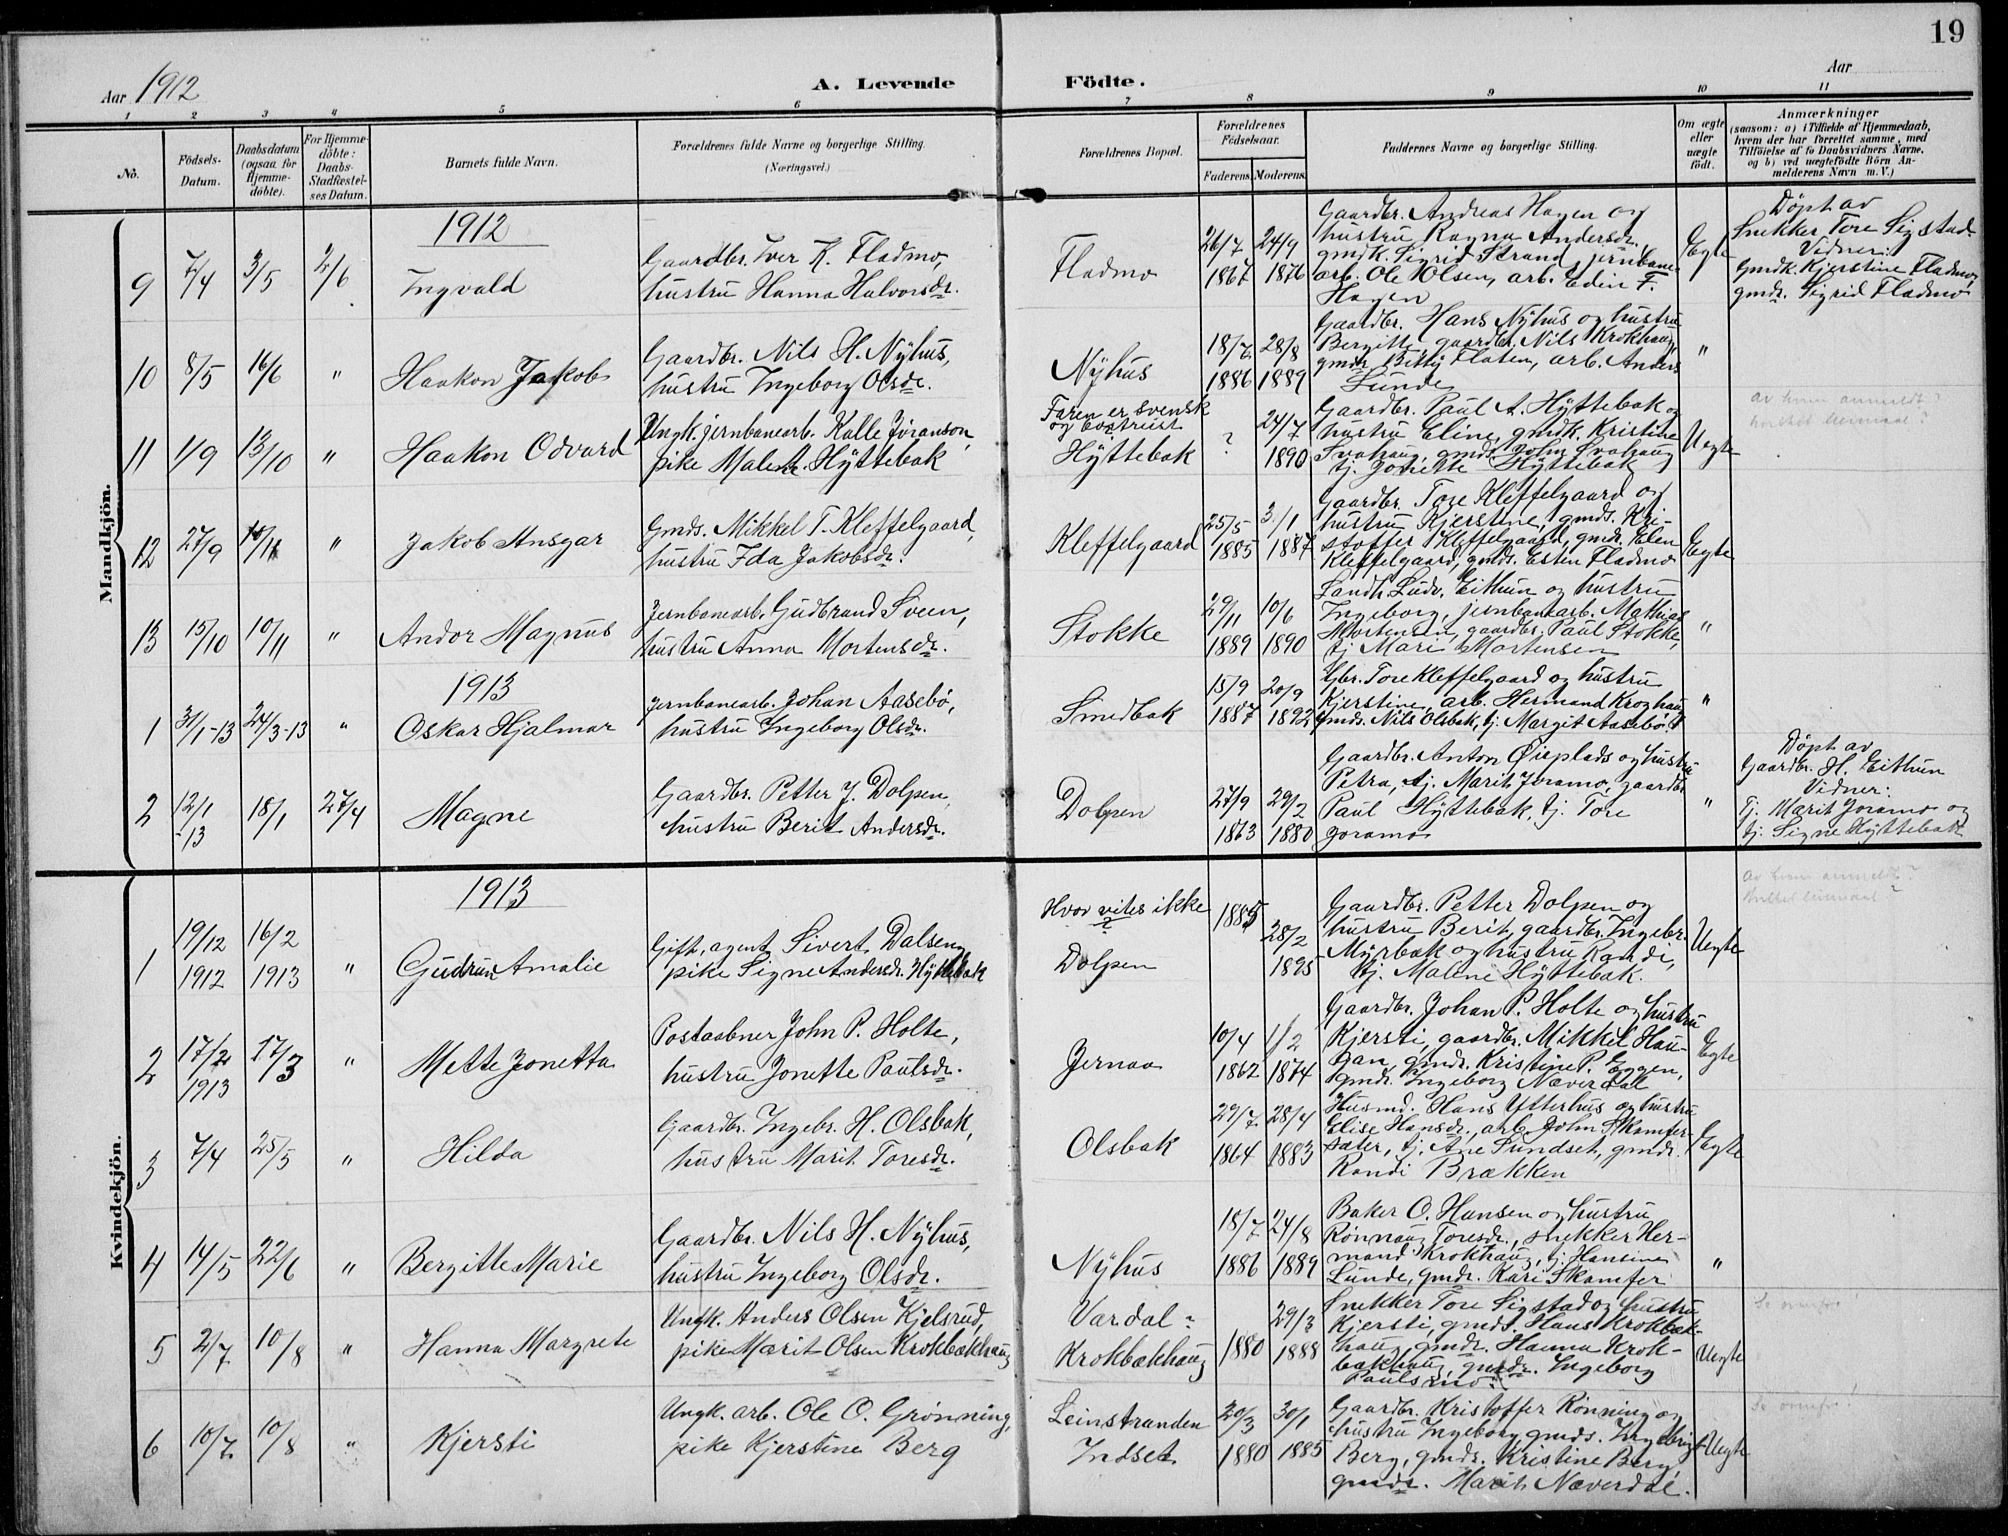 19
Aar 1912
A. Levende Födte.
Aar
1 2 3 4 5 6 7 8 9 10 11
No.
Födsels-
Datum.
Daabsdatum
(ogsaa for
Hjemme-
döbte).
For Hjemme-
döbte:
Daabs-
Stadfæstel-
ses Datum.
Barnets fulde Navn.
Forældrenes fulde Navne og borgerlige Stilling.
(Næringsvei.)
Forældrenes Bopæl.
Forældrenes
Födselsaar.
Faderens. Moderens.
Faddernes Navne og borgerlige Stilling.
Om ægte
eller
uægte
født.
Anmærkninger
(saasom: a) i Tilfælde af Hjemmedaab,
hvem der har forrettet samme, med
Tilföielse af to Daabsvidners Navne,
og b) ved uægtefödte Börn An-
melderens Navn m. V.)
Mandkjön.
1912
9 7/4 3/5 2/6 Ingvald
Gaardbr. Iver K. Fladmo,
hustru Hanna Halvorsdr.
Fladmo
26/7 1867
24/9 1876
Gaardbr. Andreas Hagen og
hustru Ragna Andersdr.,
gmdk. Sigrid Strand, jernbane-
arb. Ole Olsen, arb. Edin F.
Hagen
Egte
Døpt av
Snekker Tore Sigstad.
Vidner:
Gmdk. Kjerstine Fladmo,
gmdr. Sigrid Fladmo
10 8/5 16/6 " Haakon Jakob
Gaardbr. Nils H. Nÿhus,
hustru Ingeborg Olsdr.
Nÿhus
18/7 1886
28/8 1889
Gaardbr. Hans Nÿhus og hustru
Bergitte, gaardbr. Nils Krokhaug,
gmdr. Betsy Floten, arb. Anders
Lunde
"
11 1/9 13/10 " Haakon Odvard
Ungk. jernbanearb. Kalle Jöranson,
pike Malen A. Hÿttebak
Faren er svensk
Hÿttebak
?
24/7 1890
Gaardbr. Paul A. Hÿttebak og
hustru Eline, gmdk. Kristine
Svahaug, gmds. John Svahaug
tj. Jonette Hÿttebak
Uegte
av hvem anmeldt?
12 27/9 10/11 " Jakob Ansgar
Gmds. Mikkel T. Kleffelgaard,
hustru Ida Jakobsdr.
Kleffelgaard
25/5 1885
3/1 1887
Gaardbr. Tore Kleffelgaard og
hustru Kjerstine, gmds. Kri-
stoffer Kleffelgaard, gmdr. Elen
Kleffelgaard, gmds. Esten Fladmo
Egte
13 15/10 10/11 " Andor Magnus
Jernbanearb. Gudbrand Sveen,
hustru Anna Mortensdr.
Stokke
29/11 1889
10/6 1890
Landh. Ludv. Eithun og hustru
Ingeborg, jernbanearb. Mathias
Mortensen, gaardbr. Paul Stokke,
tj. Mari Mortensen
"
1913
1 31/1-13 24/3-13 " Oskar Hjalmar
Jernbanearb. Johan Aasebö,
hustru Ingeborg Olsdr.
Smedbak
15/9 1887
20/9 1892
Gbr. Tore Kleffelgaard og hustru
Kjerstine, arb. Hermand Kroghaug
Gmds. Nils Olsbak, tj. Margit Aasebö
"
2 12/1-13 18/1 27/4 Magne
Gaardbr. Petter J. Dolpen,
hustru Berit Andersdr.
Dolpen
27/9 1863
29/2 1880
Gaardbr. Anton Øieplads og hustru
Petra, tj. Marit Joramo, gaardbr.
Paul Hÿttebak, tj. Tore
Joramo
"
Døpt av
Gaardbr. H. Eithun
Vidner:
Tj. Marit Joramo og
tj. Signe Hÿttebak
Kvindekjön.
1913
1 19/12 1912 16/2 1913 " Gudrun Amalie
Gift, agent Sivert Dalseng
pike Signe Andersdr. Hÿttebak
Hvor vites ikke
?
Dolpen
1885
28/2 1895
Gaardbr. Petter Dolpen og
hustru Berit, gaardbr. Ingebr.
Mÿrbak og hustru Randi,
tj. Malene Hÿttebak.
Uegte
av hvem anmeldt?
2 17/2 1913 17/3 " Mette Jonetta
Postaabner John P. Holte,
hustru Jonette Paulsdr.
Jernaa
10/4 1862
1/2 1874
Gaardbr. Johan P. Holte og hustru
Kjersti, gaardbr. Mikkel Hau-
gan, gmdr. Kristine P. Eggen,
gmdr. Ingeborg Næverdal
Egte
3 7/4 25/5 " Hilda
Gaardbr. Ingebr. H. Olsbak,
hustru Marit Toresdr.
Olsbak
29/7 1864
28/4 1883
Husmd. Hans Ytterhus og hustru
Elise Hansdr., arb. John Skamfer-
sæter, tj. Ane Sundset, gmdr.
Randi Brækken
Egte
4 14/5 22/6 " Bergitte Marie
Gaardbr. Nils H. Nÿhus,
hustru Ingeborg Olsdr.
Nÿhus
18/7 1886
24/8 1889
Baker O. Hansen og hustru
Rønnaug Toresdr., snekker Her-
mand Krokhaug, tj. Hansine
Lunde, gmdr. Kari Skamfer
"
5 2/7 10/8 " Hanna Margrete
Ungk. Anders Olsen Kjelsrud,
pike Marit Olsen Krokbækhaug
Vardal
Krokbækhaug
1880
29/3 1888
Snekker Tore Sigstad og hustru
Kjersti, gmds. Hans Krokbæk-
haug, gmdr. Hanna Krok-
bækhaug, gmdr. Ingeborg
Uegte
6 10/7 10/8 " Kjersti
Ungk. arb. Ole O. Grönning,
pike Kjerstine Berg
Leinstranden
Indset
20/3 1880
30/1 1885
Gaardbr. Kristoffer Rönning og
hustru Ingeborg, gmds. Ingebrigt
Berg, gmdr. Kristine Berg,
gmdr. Marit Næverdal.
Uegte